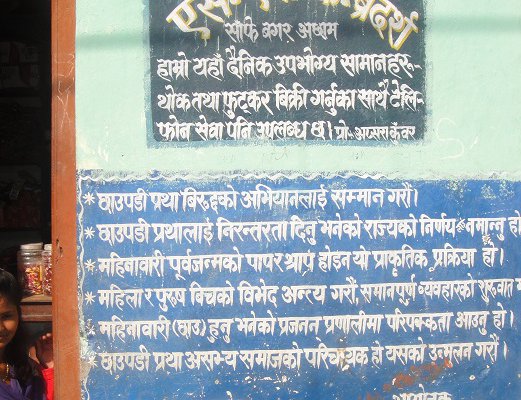 साफे बगर अछाम
हाम्रो यहाँ दैनिक उपभोग्य सामानहरु
थोक तथा फुटकर बिक्री गर्नुका साथै टेलि-
फोन सेवा पनि उपलब्ध छ। प्रो. अप्सरा कुँवर
* छाउपडी प्रथा बिरुद्दको अभियानलाई सम्मान गरौं।
* छाउपडी प्रथालाई निरन्तरता दिनु भनेको राज्यको निर्णय नमान्नु हो
* महिनावारी पूर्वजन्मको पाप र श्राप होइन यो प्राकृतिक प्रक्रिया हो।
* महिला र पुरुष बिचको विभेद अन्त्य गरौं, समानपूर्ण व्यवहारको शुरुवात
* महिनावारी (छाउ) हुनु भनेको प्रजनन प्रणालीमा परिपक्कता आउनु हो।
* छाउपडी प्रथा असभ्य समाजको परिचायक हो यसको उन्मूलन गरौं।